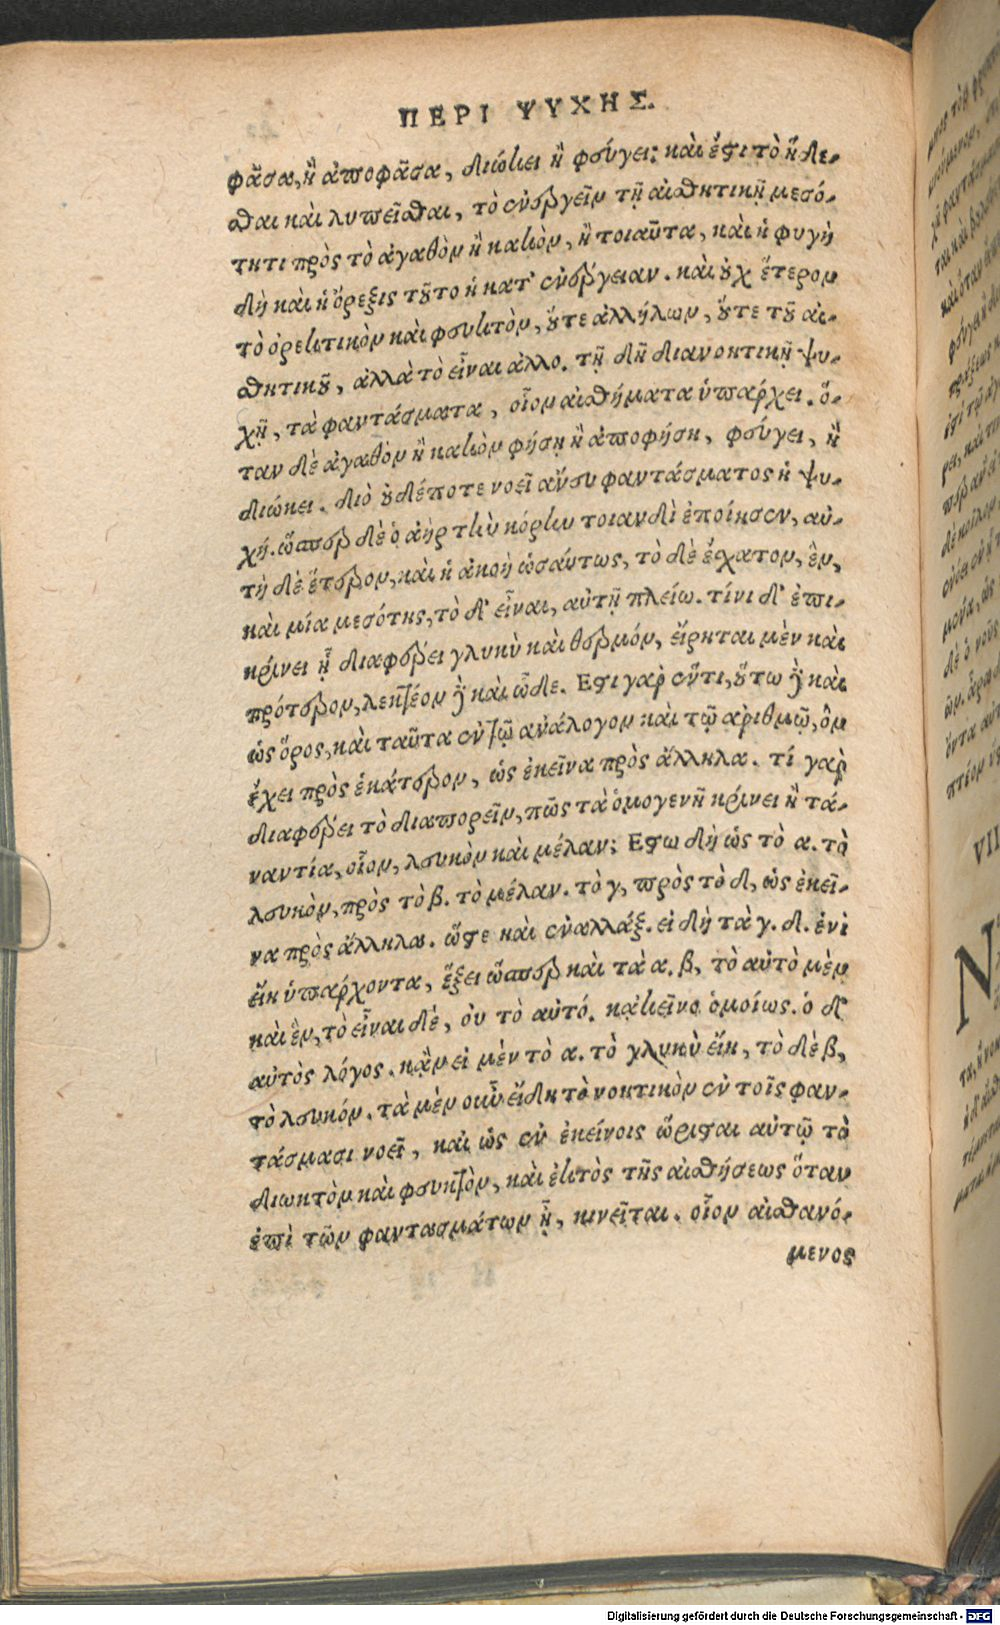 ΠΕΡΙ ΨΥΧΗΣ.
φᾶσα, ἢ ἀποφᾶσα, διώκει ἢ φεύγει: καὶ ἔστι τὸ ἥδε-
σθαι καὶ λυπεῖσθαι, τὸ ἐνεργεῖν τῇ αἰσθητικῇ μεσό-
τητι πρὸς τὸ ἀγαθὸν ἢ κακὸν, ἢ τοιαῦτα, καὶ ἡ φυγὴ
δὴ καὶ ἡ ὄρεξις τοῦτο ἡ κατ' ἐνέργειαν. καὶ οὐχ ἕτερον
τὸ ὀρεκτικὸν καὶ φευκτὸν, οὔτε ἀλλήλων, οὔτε τοῦ αἰ-
σθητικοῦ, ἀλλὰ τὸ εἶναι ἄλλο. τῇ δὴ διανοητικῇ ψυ-
χῇ, τὰ φαντάσματα, οἷον αἰσθήματα ὑπάρχει. ὅ-
ταν δὲ ἀγαθὸν ἢ κακὸν φήσῃ ἢ ἀποφήσῃ, φεύγει, ἢ
διώκει. διὸ οὐδέποτε νοεῖ ἄνευ φαντάσματος ἡ ψυ-
χή. ὥσπερ δὲ ὁ ἀὴρ τὴν κόρην τοιανδὶ ἐποίησεν, αὐ-
τὴ δὲ ἕτερον, καὶ ἡ ἀκοὴ ὡσαύτως, τὸ δὲ ἔσχατον, ἓν,
καὶ μία μεσότης, τὸ δ' εἶναι, αὐτῇ πλείω. τίνι δ' ἐπι-
κρίνει ᾗ διαφέρει γλυκὺ καὶ θερμόν, εἴρηται μὲν καὶ
πρότερον, λεκτέον δὲ καὶ ὧδε. Εστι γὰρ ἕν τι, οὕτω δὲ καὶ
ὡς ὅρος, καὶ ταῦτα ἓν τῷ ἀνάλογον καὶ τῷ ἀριθμῷ, ὃν
ἔχει πρὸς ἑκάτερον, ὡς ἐκεῖνα πρὸς ἄλληλα. τί γὰρ
διαφέρει τὸ διαπορεῖν, πῶς τὰ ὁμογενῆ κρίνει ἢ τἀ-
ναντία, οἷον, λευκὸν καὶ μέλαν; Εστω δὴ ὡς τὸ α. τὸ
λευκὸν, πρὸς τὸ β. τὸ μέλαν. τὸ γ, πρὸς τὸ δ, ὡς ἐκεῖ-
να πρὸς ἄλληλα. ὥστε καὶ ἐναλλάξ. εἰ δὴ τὰ γ. δ. ἑνὶ
εἴη ὑπάρχοντα, ἕξει ὥσπερ καὶ τὰ α. β, τὸ αὐτὸ μὲν
καὶ ἓν, τὸ εἶναι δὲ, ου τὸ αὐτό. κᾀκεῖνο ὁμοίως. ὁ δ'
αὐτὸς λόγος. κᾂν εἰ μὲν τὸ α. τὸ γλυκὺ εἴη, τὸ δὲ β,
τὸ λευκόν. τὰ μὲν οὖν εἴδη τὸ νοητικὸν ἐν τοῖς φαν-
τάσμασι νοεῖ, καὶ ὡς ἐν ἐκείνοις ὥρισται αὐτῷ τὸ
διωκτὸν καὶ φευκτὸν, καὶ ἐκτὸς τῆς αἰσθήσεως ὅταν
ἐπὶ τῶν φαντασμάτων ᾖ, κινεῖται. οἷον αἰσθανό-
μενος
VII
N
Digitalisierung gefördert durch die Deutsche Forschungsgemeinschaft - DFG